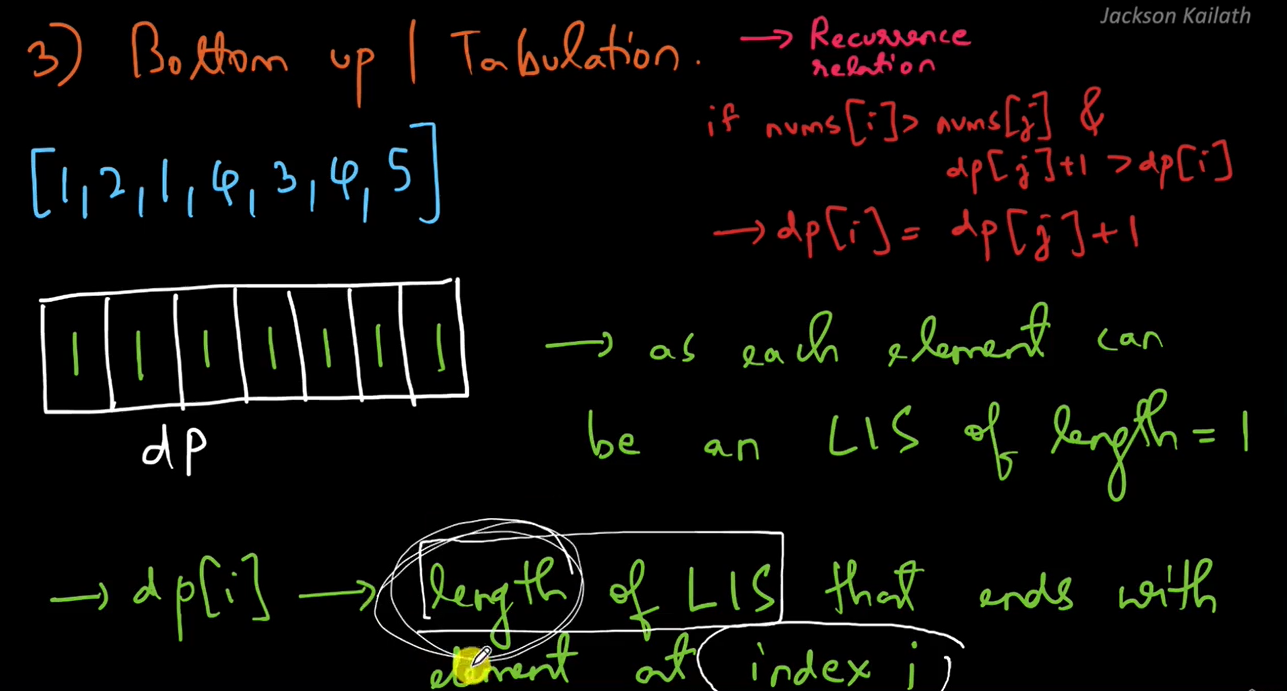 Jackson Kailath
3) Bottom up | Tabulation.
→ Recurrence
relation
if nums[i]> nums[j] &
dp[j]+1 >dp[i]
→ dp[i]= dp[j]+1
[1,2,1,4,3,4,5]
1 1 1 1 1 1 1
dp
→ as each element can
be an LIS of length=1
→ dp[i] → length of LIS that ends with
element at index i